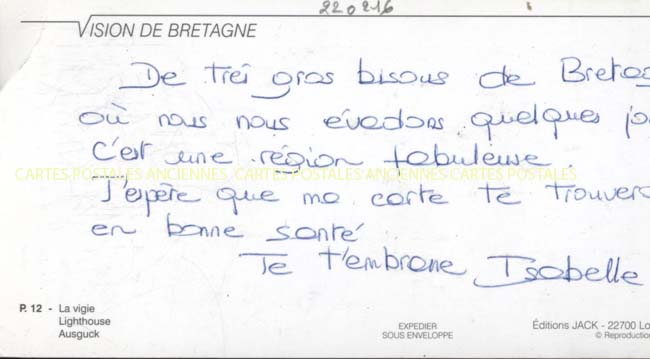 220216
VISION DE BRETAGNE
De trei gros bisous de Bretag
où nous nous évadons quelques jo
C'est une région fabuleuse.
CARTES POSTALES ANCIENNES CARTES POSTALES ANCIENNES CARTES POSTALES
J'espère que ma carte te trouvera
en bonne santé
Je t'embrasse Isabelle
P. 12 - La vigie
Lighthouse
Ausguck
EXPEDIER
SOUS ENVELOPPE
Éditions JACK - 22700 Lo
© Reproduction